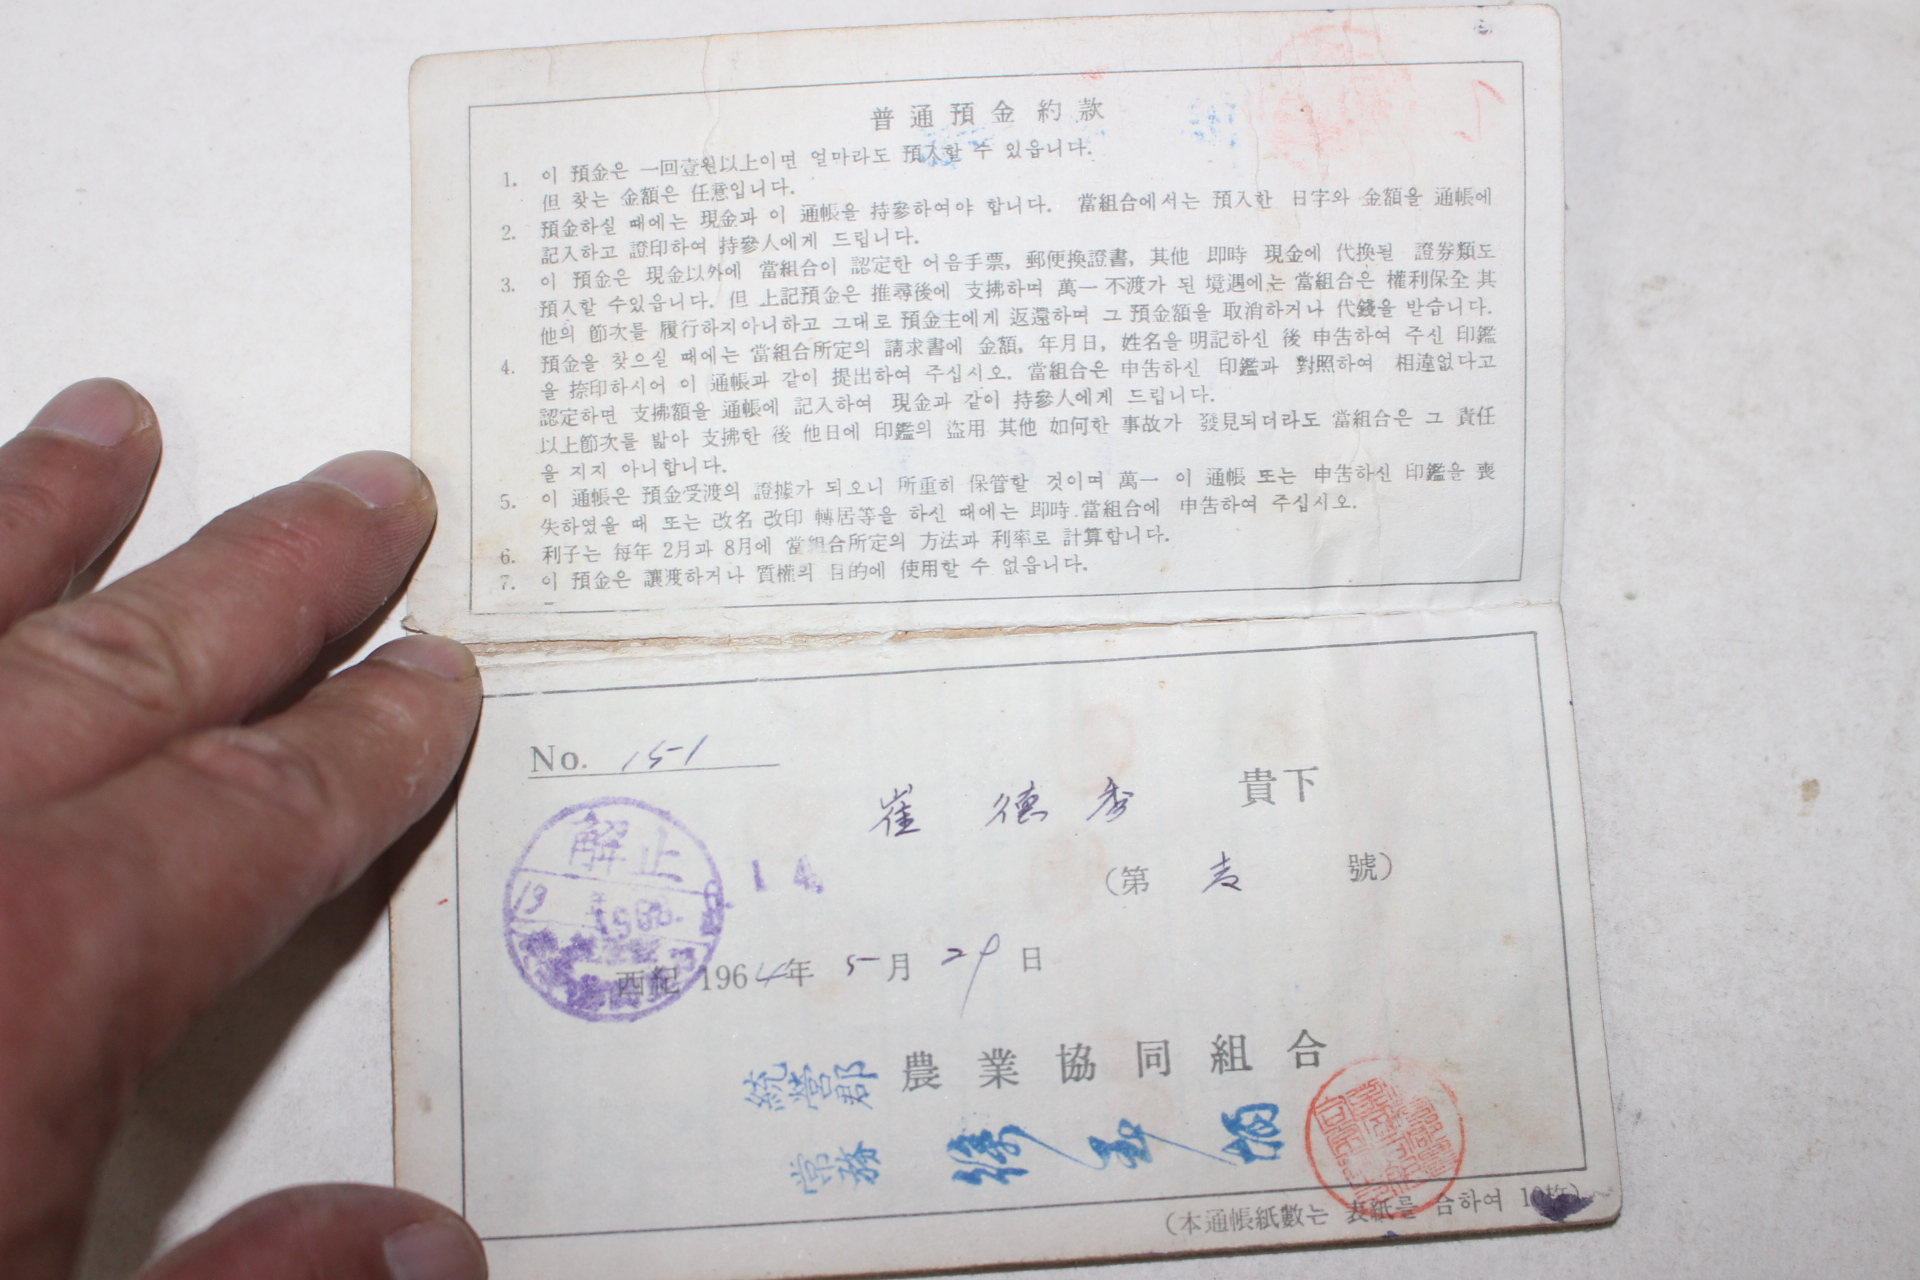 普通預金約款
1. 이 預金은 一回壹원以上이면 얼마라도 預入할 수 있읍니다.
但 찾는 金額은 任意입니다.
2. 預金하실 때에는 現金과 이 通帳을 持參하여야 합니다. 當組合에서는 預入한 日字와 金額을 通帳에
記入하고 證印하여 持參人에게 드립니다.
3. 이 預金은 現金以外에 當組合이 認定한 어음手票, 郵便換證書, 其他 即時 現金에 代換될 證券類도
預入할 수있읍니다. 但 上記預金은 推尋後에 支拂하며 萬一 不渡가 된 境遇에는 當組合은 權利保全 其
他의 節次를 履行하지아니하고 그대로 預金主에게 返還하며 그 預金額을 取消하거나 代錢을 받습니다.
4. 預金을 찾으실 때에는 當組合所定의 請求書에 金額, 年月日, 姓名을 明記하신 後 申告하여 주신 印鑑
을 捺印하시어 이 通帳과 같이 提出하여 주십시오. 當組合은 申告하신 印鑑과 對照하여 相違없다고
認定하면 支拂額을 通帳에 記入하여 現金과 같이 持參人에게 드립니다.
以上節次를 밟아 支拂한 後 他日에 印鑑의 盜用 其他 如何한 事故가 發見되더라도 當組合은 그 責任
을 지지 아니합니다.
5. 이 通帳은 預金受渡의 證據가 되오니 所重히 保管할 것이며 萬一 이 通帳 또는 申告하신 印鑑을 喪
失하였을 때 또는 改名 改印 轉居等을 하신 때에는 即時 當組合에 申告하여 주십시오.
6. 利子는 每年 2月과 8月에 當組合所定의 方法과 利率로 計算합니다.
7. 이 預金은 讓渡하거나 質權의 目的에 使用할 수 없읍니다.
No. 15-1
崔 德秀 貴下
解止
14
(第 號)
西紀 1964年 5月 29日
統營郡 農業協同組合
常務 徐
(本通帳紙數는 表紙를 合하여 10枚)